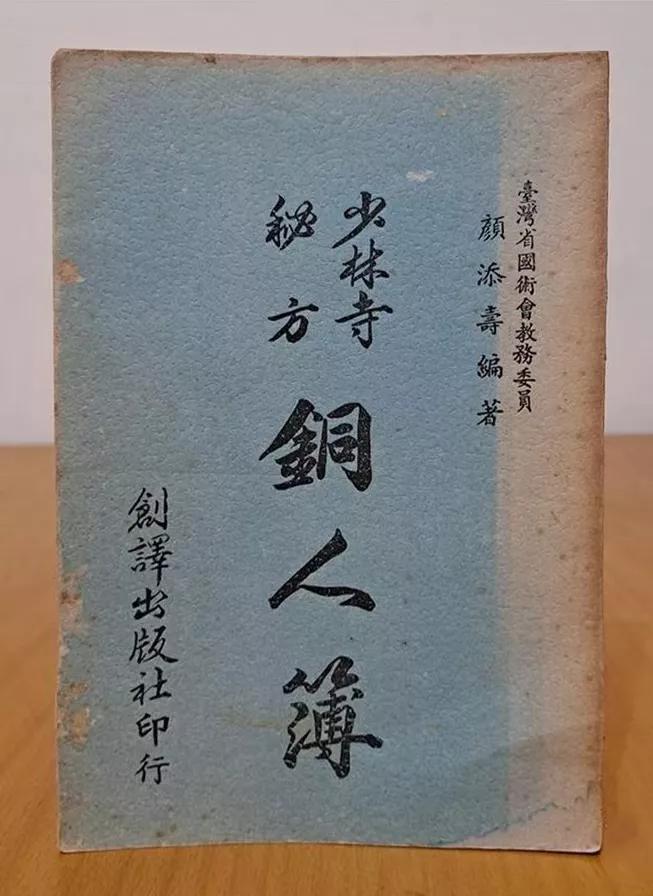 臺灣省國術會教務委員
顏添壽編著
少林寺
秘方
銅人簿
創譯出版社印行